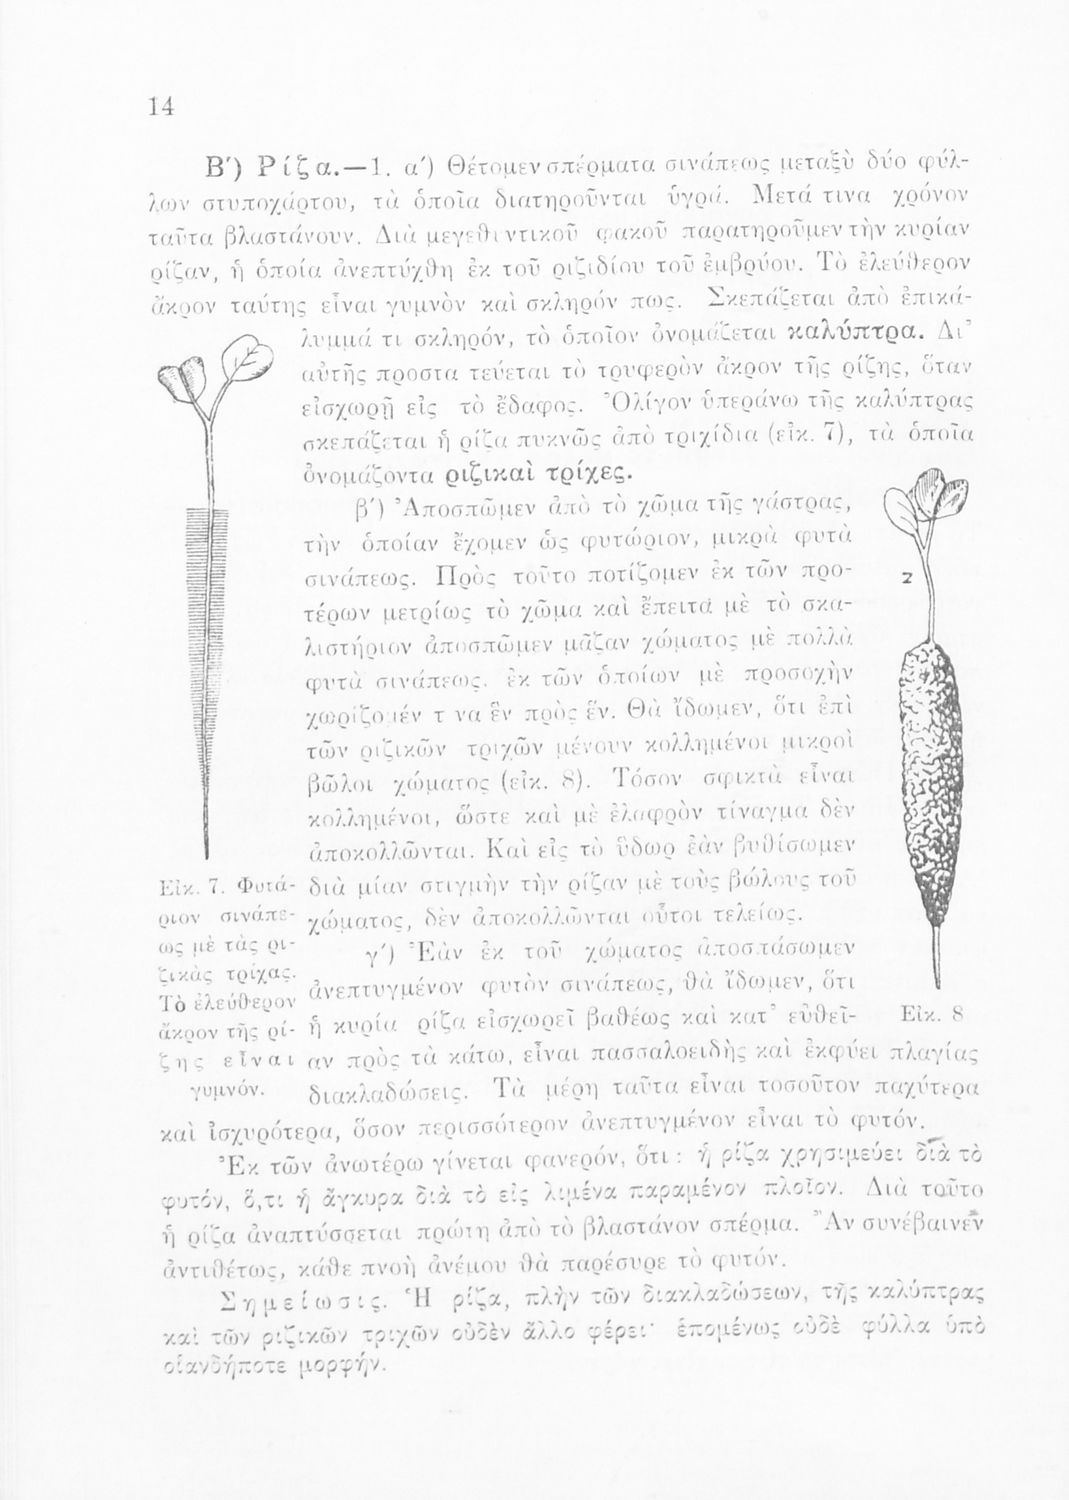 14
Β') Ρίζα.—1. α') Θέτομεν σπέρματα σινάπεως μεταξὺ δύο φύλ-
λων στυποχάρτου, τὰ ὁποῖα διατηροῦνται ὑγρά. Μετά τινα χρόνον
ταῦτα βλαστάνουν. Διὰ μεγεθυντικοῦ φακοῦ παρατηροῦμεν τὴν κυρίαν
ρίζαν, ἡ ὁποία ἀνεπτύχθη ἐκ τοῦ ριζιδίου τοῦ ἐμβρύου. Τὸ ἐλεύθερον
ἄκρον ταύτης εἶναι γυμνὸν καὶ σκληρόν πως. Σκεπάζεται ἀπὸ ἐπικά-
λυμμά τι σκληρόν, τὸ ὁποῖον ὀνομάζεται καλύπτρα. Δι'
αὐτῆς προστατεύεται τὸ τρυφερὸν ἄκρον τῆς ρίζης, ὅταν
εἰσχωρῇ εἰς τὸ ἔδαφος. Ὀλίγον ὑπεράνω τῆς καλύπτρας
σκεπάζεται ἡ ρίζα πυκνῶς ἀπὸ τριχίδια (εἰκ. 7), τὰ ὁποῖα
ὀνομάζοντα ριζικαὶ τρίχες.
β') Ἀποσπῶμεν ἀπὸ τὸ χῶμα τῆς γάστρας,
τὴν ὁποίαν ἔχομεν ὡς φυτώριον, μικρὰ φυτὰ
σινάπεως. Πρὸς τοῦτο ποτίζομεν ἐκ τῶν προ-
τέρων μετρίως τὸ χῶμα καὶ ἔπειτα μὲ τὸ σκα-
λιστήριον ἀποσπῶμεν μᾶζαν χώματος μὲ πολλὰ
φυτὰ σινάπεως. ἐκ τῶν ὁποίων μὲ προσοχὴν
χωρίζομέν τινα ἓν πρὸς ἕν. Θὰ ἴδωμεν, ὅτι ἐπὶ
τῶν ριζικῶν τριχῶν μένουν κολλημένοι μικροὶ
βῶλοι χώματος (εἰκ. 8). Τόσον σφικτὰ εἶναι
κολλημένοι, ὥστε καὶ μὲ ἐλαφρὸν τίναγμα δὲν
ἀποκολλῶνται. Καὶ εἰς τὸ ὕδωρ ἐὰν βυθίσωμεν
διὰ μίαν στιγμὴν τὴν ρίζαν μὲ τοὺς βώλους τοῦ
χώματος, δὲν ἀποκολλῶνται οὗτοι τελείως.
γ') Ἐὰν ἐκ τοῦ χώματος ἀποσπάσωμεν
ἀνεπτυγμένον φυτὸν σινάπεως, θὰ ἴδωμεν, ὅτι
ἡ κυρία ρίζα εἰσχωρεῖ βαθέως καὶ κατ' εὐθεῖ-
αν πρὸς τὰ κάτω, εἶναι πασσαλοειδὴς καὶ ἐκφύει πλαγίας
διακλαδώσεις. Τὰ μέρη ταῦτα εἶναι τοσοῦτον παχύτερα
καὶ ἰσχυρότερα, ὅσον περισσότερον ἀνεπτυγμένον εἶναι τὸ φυτόν.
Ἐκ τῶν ἀνωτέρω γίνεται φανερόν, ὅτι: ἡ ρίζα χρησιμεύει διὰ τὸ
φυτόν, ὅ,τι ἡ ἄγκυρα διὰ τὸ εἰς λιμένα παραμένον πλοῖον. Διὰ τοῦτο
ἡ ρίζα ἀναπτύσσεται πρώτη ἀπὸ τὸ βλαστάνον σπέρμα. Ἂν συνέβαινεν
ἀντιθέτως, κάθε πνοὴ ἀνέμου θὰ παρέσυρε τὸ φυτόν.
Σημείωσις. Ἡ ρίζα, πλὴν τῶν διακλαδώσεων, τῆς καλύπτρας
καὶ τῶν ριζικῶν τριχῶν οὐδὲν ἄλλο φέρει· ἑπομένως οὐδὲ φύλλα ὑπὸ
οἱανδήποτε μορφήν.
Εἰκ. 7. Φυτά-
ριον σινάπε-
ως μὲ τὰς ρι-
ζικὰς τρίχας.
Τὸ ἐλεύθερον
ἄκρον τῆς ρί-
ζης εἶναι
γυμνόν.
2
Εἰκ. 8